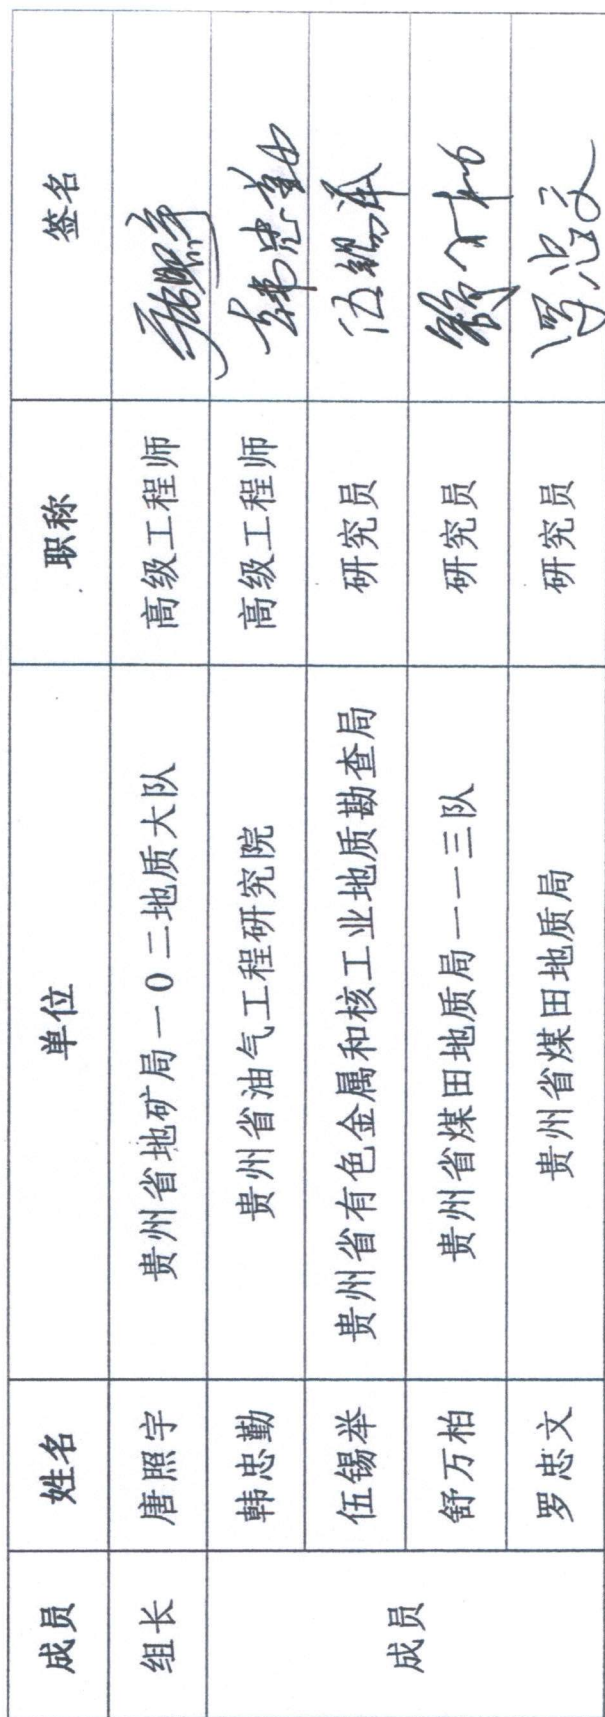 成员 姓名 单位 职称 签名
组长 唐照宇 贵州省地矿局一0二地质大队 高级工程师 唐照宇
成员 韩忠勤 贵州省油气工程研究院 高级工程师 韩忠勤
伍锡举 贵州省有色金属和核工业地质勘查局 研究员 伍锡举
舒万柏 贵州省煤田地质局一一三队 研究员 舒万柏
罗忠文 贵州省煤田地质局 研究员 罗忠文